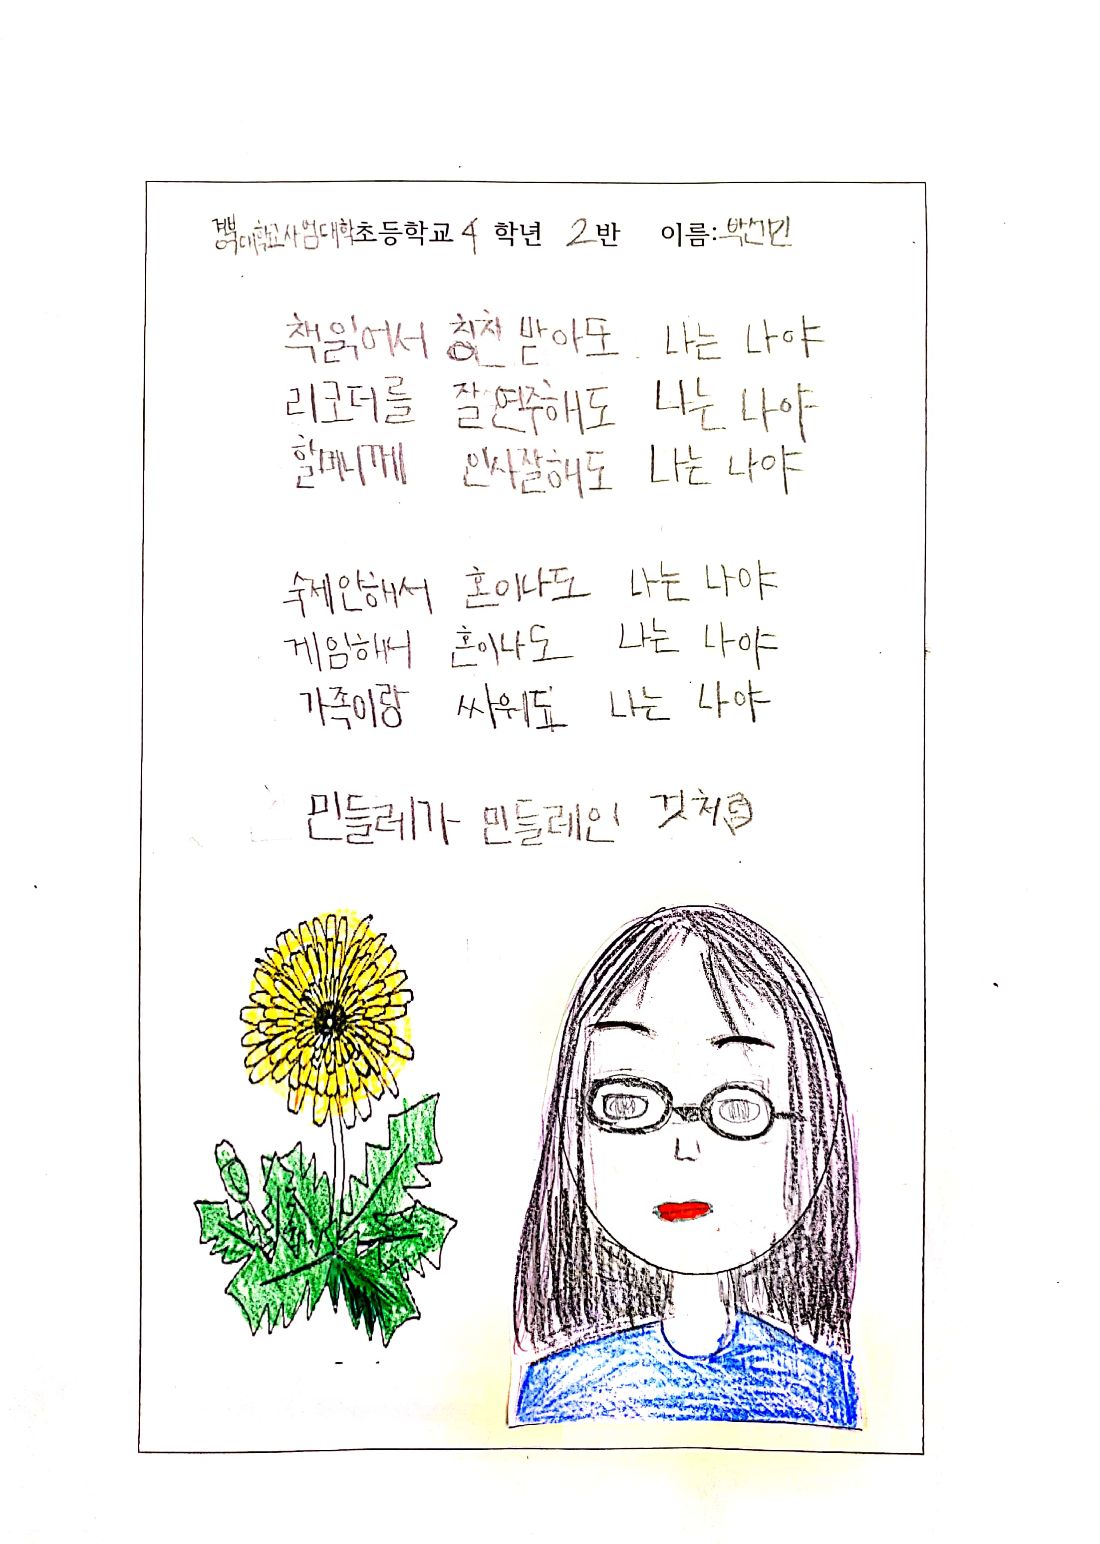 경북대학교사범대학초등학교 4 학년 2 반 이름:박선민
책읽어서 칭찬 받아도 나는 나야
리코더를 잘 연주해도 나는 나야
할머니께 인사잘해도 나는 나야
숙제안해서 혼이나도 나는 나야
게임해서 혼이나도 나는 나야
가족이랑 싸워도 나는 나야
민들레가 민들레인 것처럼